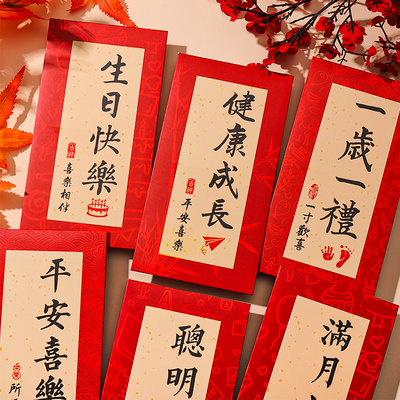 生日快樂
喜樂相伴
健康成長
平安喜樂
一歲一禮
一寸歡喜
平安喜樂
所
聰明
滿月